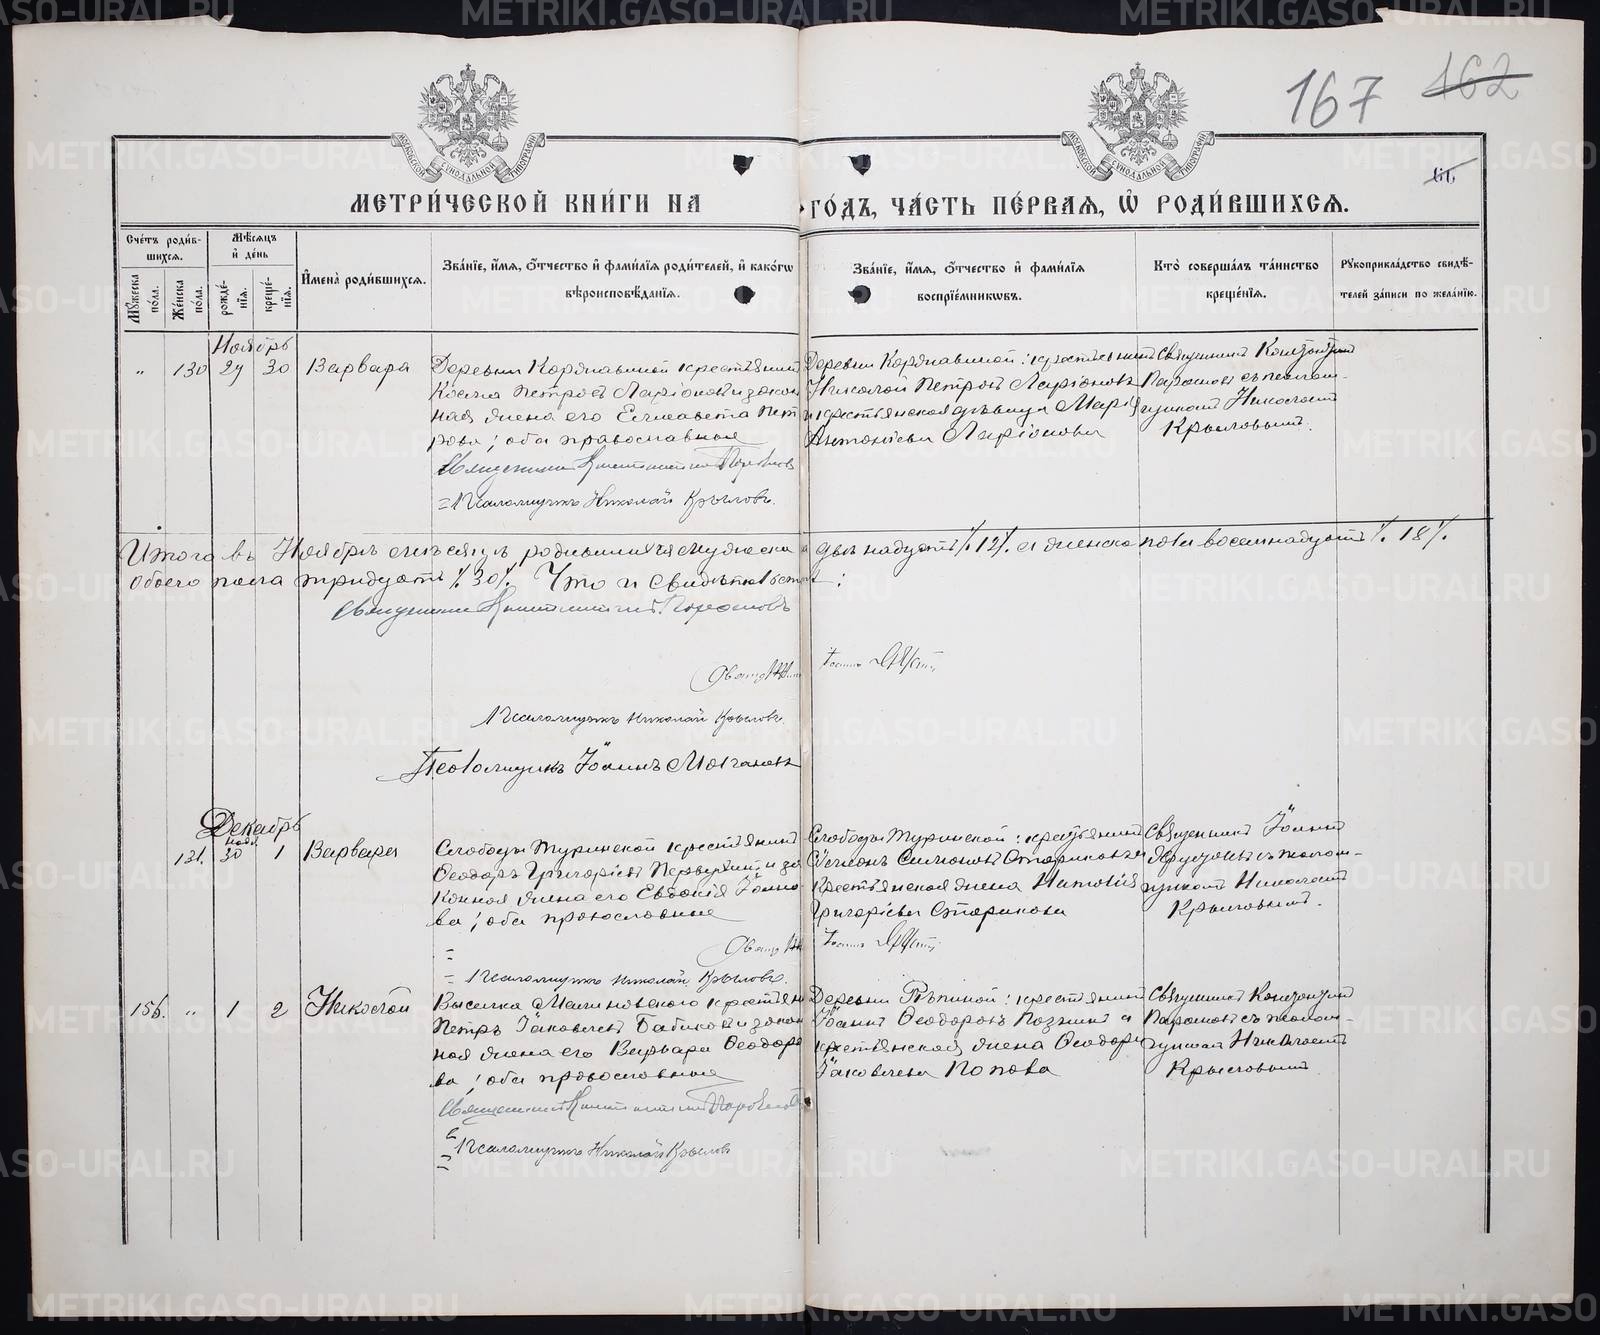 167 162
66
МЕТРИ́ЧЕСКОЙ КНИ́ГИ НА ГО́ДЪ, ЧА́СТЬ ПЕ́РВАЯ, Ѿ РОДИ́ВШИХСЯ.
Сче́тъ роди́вшихся.
Мꙋ́жеска по́ла.
Же́нска по́ла.
Мѣ́сяцъ и҆ де́нь
рожде́нїя.
креще́нїя.
И҆мена̀ роди́вшихся.
Зва́нїе, и҆́мя, ѻ҆́тчество и҆ фами́лїя роди́телей, и҆ како́гѡ
вѣроисповѣ́данїя.
Зва́нїе, и҆́мя, ѻ҆́тчество и҆ фами́лїя
воспрїе́мникѡвъ.
Кто̀ соверша́лъ та́инство
креще́нїя.
Рꙋкоприкла́дство свидѣ́-
телей за́писи по жела́нїю.
Ноябрь
" 130 29 30 Варвара
Деревни Кордюковой крестьянинъ
Косма Петровъ Ларіоновъ и закон
ная жена его Елисавета Пет
рова; оба православные
Священникъ Константинъ
Псаломщикъ Николай Крыловъ.
крестьянинъ
Николай Петровъ Ларіоновъ
и крестьянская дѣвица Марія
Антоніева Ларіонова
Священникъ Константинъ
съ псалом-
щикомъ Николаемъ
Крыловымъ.
Итого въ Ноябрѣ мѣсяцѣ родившихся мужеска двѣнадцать /.12/. а женска пола восемнадцать /. 18 /.
обоего пола тридцать /.30/. Что и свидѣтельст :
Священникъ Константинъ
Іоаннъ
Псаломщикъ Николай Крыловъ.
Псаломщикъ Іоаннъ Молчановъ
Декабрь
131. нояб. 30 1 Варвара
Слободы Туринской крестьянинъ
Ѳеодоръ Григоріевъ и за
конная жена его Евдокія Іоанно
ва; оба православные
Псаломщикъ Николай Крыловъ.
Слободы Туринской: крестьянинъ
Симеонъ Симоновъ Стариковъ и
крестьянская жена Наталія
Григоріева Старикова
Іоаннъ
Священникъ Іоаннъ
съ псалом-
щикомъ Николаемъ
Крыловымъ.
156. " 1 2 Николай
Выселка Малиновского крестьян
Петръ Іаковлевъ Бабиковъ и закон
ная жена его Варвара Ѳеодоро
ва; оба православные
Священникъ Константинъ
Псаломщикъ Николай Крыловъ
Деревни Рѣпиной: крестьянинъ
Іоаннъ Ѳеодоровъ и
крестьянская жена Ѳеодора
Іаковлева Попова
Священникъ Константинъ
съ псалом-
щикомъ Николаемъ
Крыловымъ
METRIKI.GASO-URAL.RU